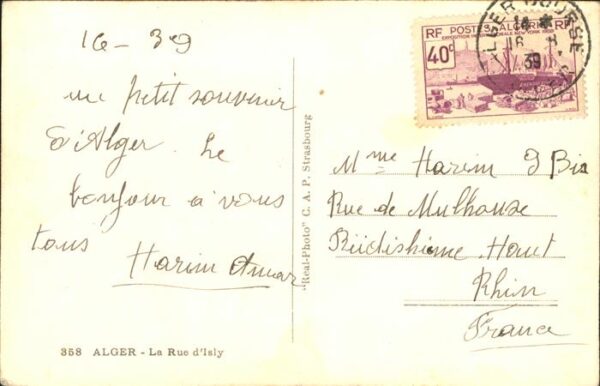 16 - 39
un petit souvenir
d'Alger. Le
bonjour à vous
tous
Harim Amar
358 ALGER - La Rue d'Isly
"Real-Photo" C. A. P. Strasbourg
RF POSTES ALGERIE RF
EXPOSITION INTERNATIONALE NEW YORK 1939
40c
ALGER BOURSE
14 *
16
39
Mme Harim 9 Bis
Rue de Mulhouse
Haut
Rhin
France